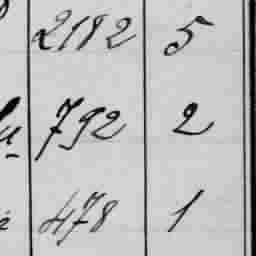 2182 5
792 2
478 1